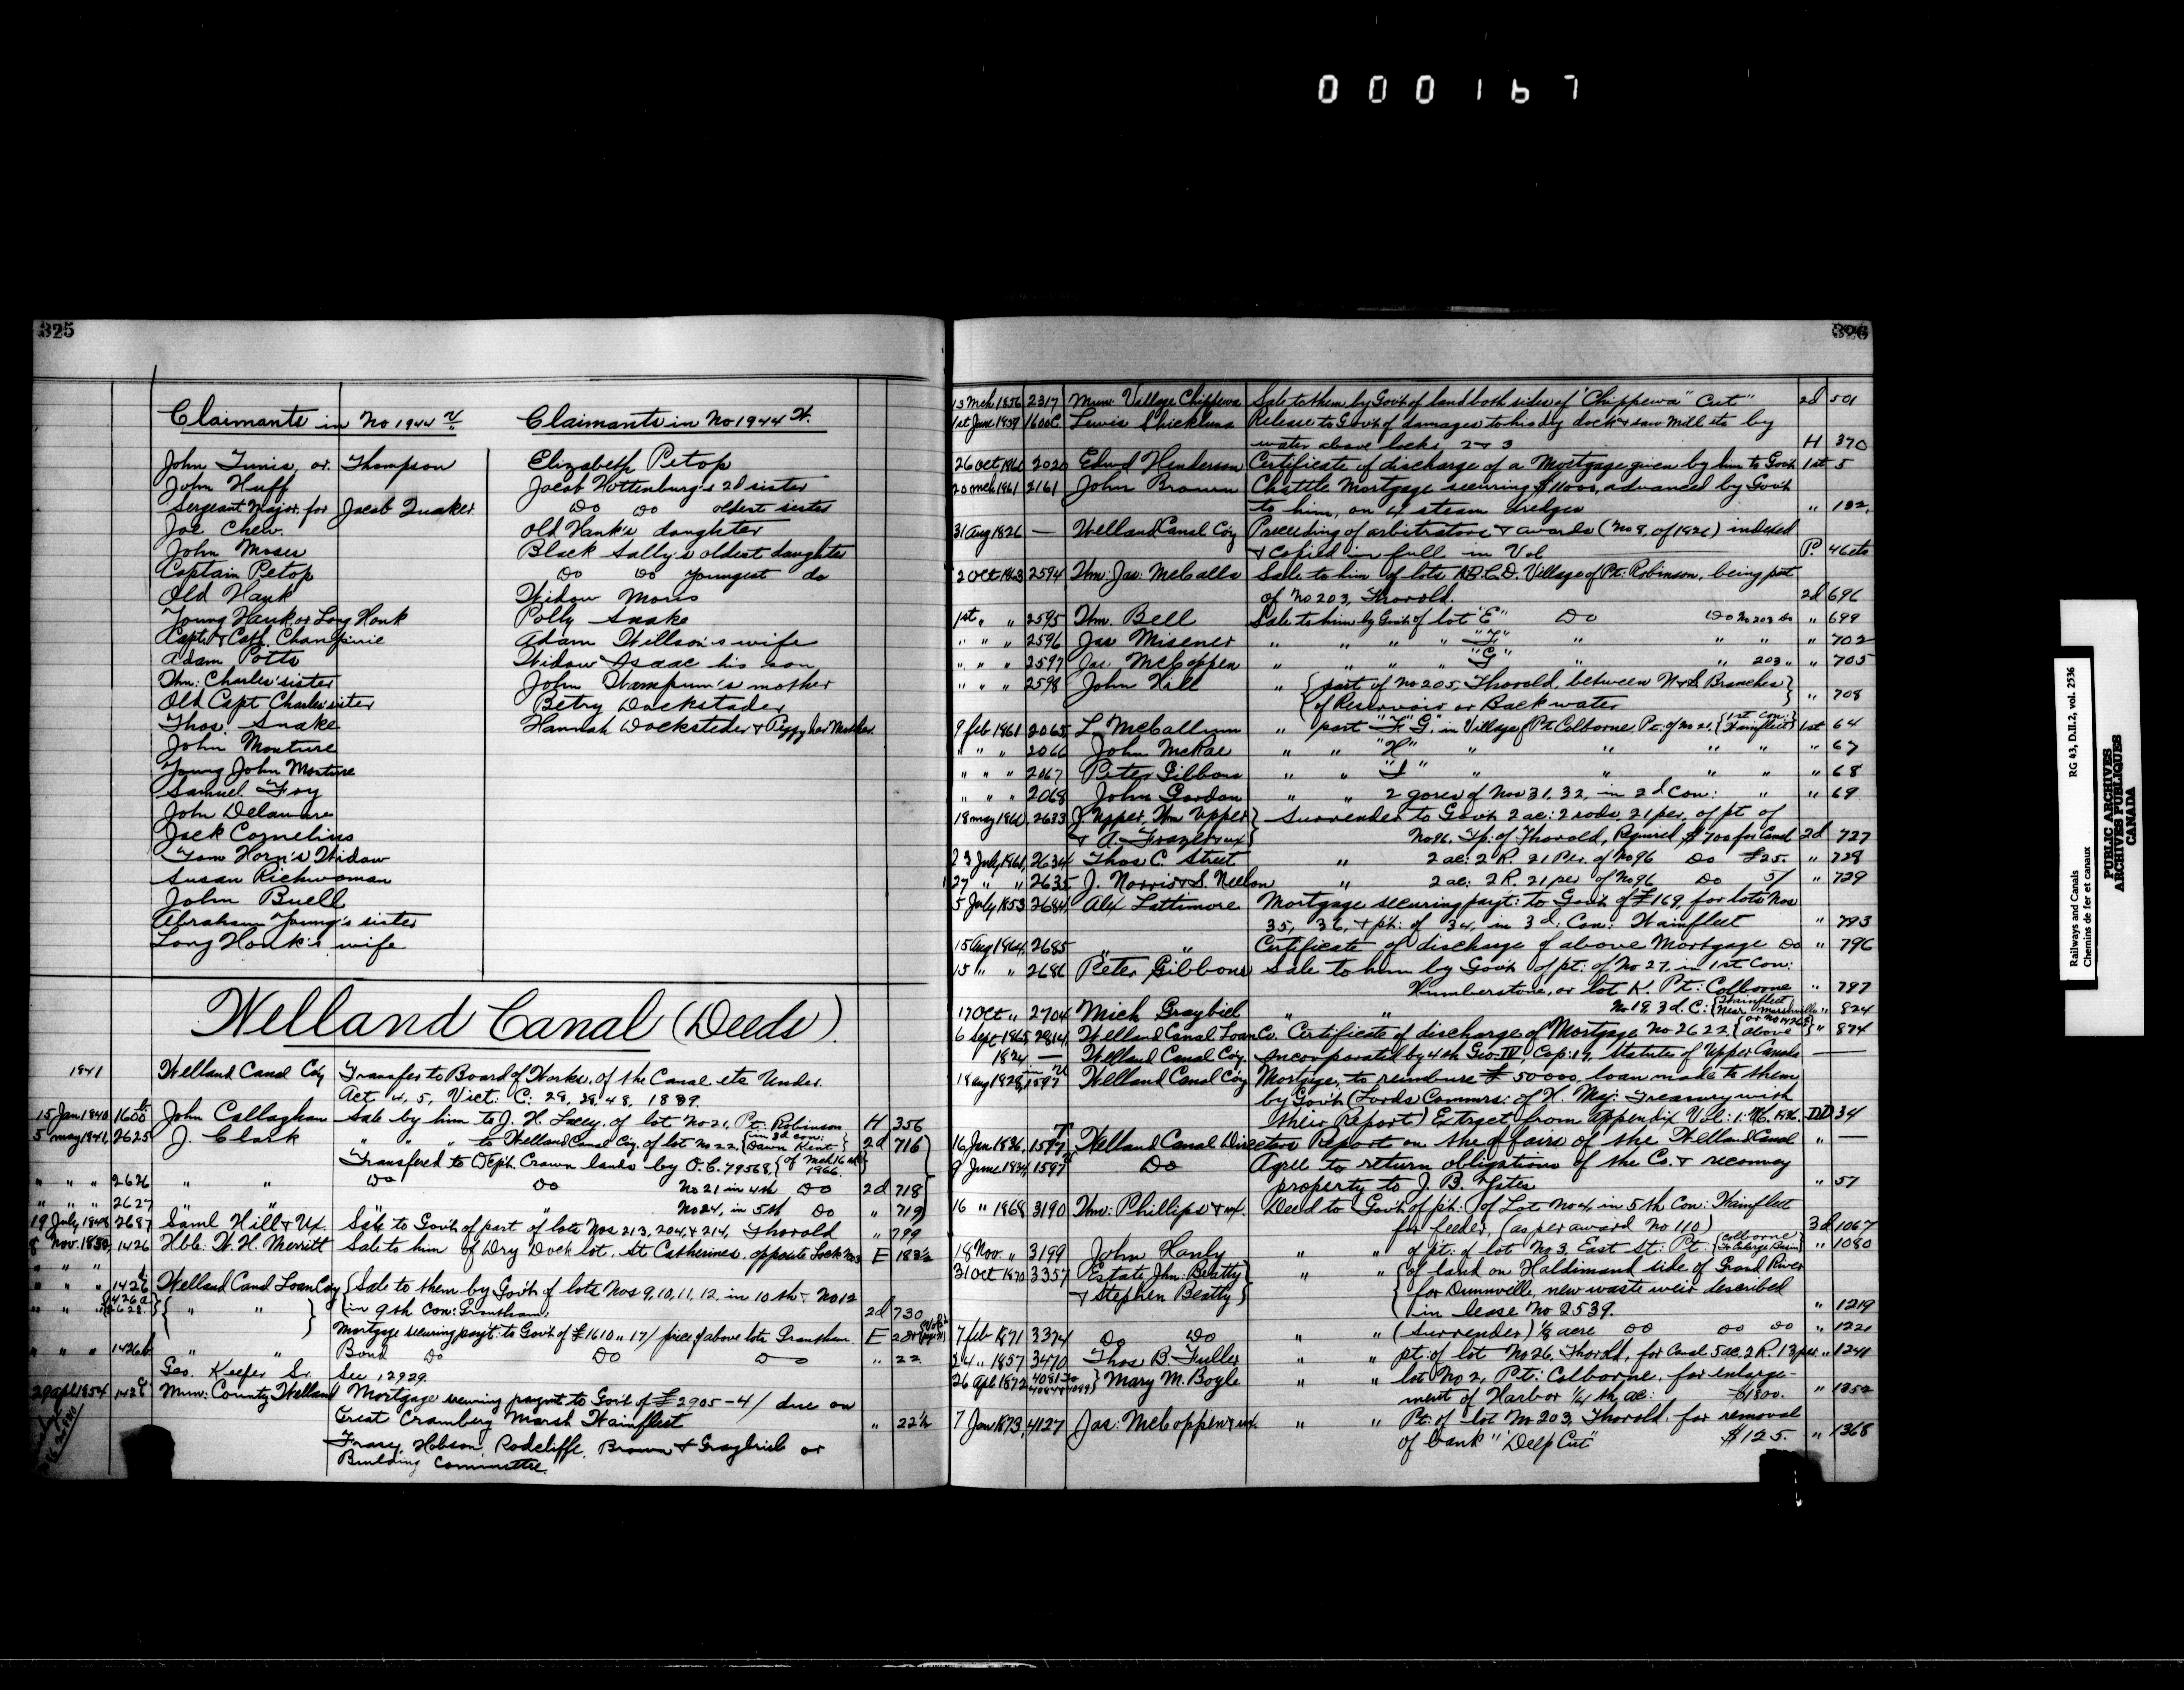 000167
325
Claimants in No 1944 V.
John Tunis, or Thompson
John Huff
Sergeant Major, for Jacob Quaker.
Joe Chew.
John Moses
Captain Petop
Old Hank
Young Hank or Long Hank
Capt & Cath.
Adam Potts
Thm: Charles' sister
Old Capt Charles' sister
Thos. Snake
John Monture
Young John Monture
Samuel Foy
John Delaware
Jack Cornelius
Tom Horn's Widow
Susan Richwoman
John Buell
Abraham Young's sister
Long Hank's wife
Claimants in No 1944 W.
Elizabeth Petop
Jacob Hottenburg's 2d sister
Do Do oldest sister
Old Hank's daughter
Black Sally's oldest daughter
Do Do youngest do
Widow Moris
Polly Snake
Adam Willson's wife
Widow Isaac his son
John Wampum's mother
Betsy Dockstader
Hannah Docksteder & Peggy her Mother.
Welland Canal (Deeds).
1841 Welland Canal Coy Transfer to Board of Works, of the Canal etc Under
Act 4, 5, Vict: C: 28, 29, 48, 1839.
15 Jan 1840 1600 b John Callaghan Sale by him to J. H. Lacey, of lot No 21, Pt: Robinson H 356
5 May 1841, 2625 J. Clark " " " to Welland Canal Coy. of lot No 22, {in 3d con: Dawn Kent} 2d 716
Transfered to Dep't. Crown lands by O.C. 79568, {of Mch 16 1866}
" " " 2626 " " Do Do No 21 in 4th Do 2d 718
" " " 2627 " " " " No 24, in 5th Do " 719
19 July 1848 2687 Saml Hill & Ux. Sale to Gov't of part of lots Nos 213, 204, & 214, Thorold " 799
8 Nov. 1850, 1426 Hble: W. H. Merritt Sale to him of Dry Dock lot, St Catherines, opposite Lock No 3 E 18 3½
" " " 1426 Welland Canal Loan Coy {Sale to them by Gov't of lots Nos 9, 10, 11, 12, in 10th & No 12
" " " {1426a 2628} { " " } in 9th Con: Grantham. 2d 730
Mortgage securing pay't: to Gov't of £1610 " 17/ price of above lots Grantham. E 20
" " " 1426b " " Bond Do Do Do " 22
Geo. Keefer Sr. See 12929.
29 Apl 1854 1426 c Mun: County Welland Mortgage securing paymt to Gov't of £2905-4/ due on
Great Cramberg Marsh Wainfleet " 22½
Frasy, Hobson, Radcliffe, Brown & Graybiel or
Building Committee.
326
13 Mch 1856 2317 Mun: Village Chippewa Sale to them by Gov't of land both sides of "Chippewa" Cut" 2d 501
1st June 1859 1600 C. Lewis Shickluna Release to Gov't of damages to his dry dock & saw mill etc by
water above locks 2 & 3 H 370
26 Oct 1860 2020 Edwd Henderson Certificate of discharge of a Mortgage given by him to Gov't 1st 5
20 Mch 1861 2161 John Brown Chattle Mortgage securing $11000, advanced by Gov't
to him, on 4 steam dredges " 182,
31 Aug 1826 — Welland Canal Coy Preceeding of arbitrators & awards (No 8, of 1826) indexed
& Copied in full in Vol P. 46 etc
2 Oct 1863 2594 Thm: Jas: McCalla Sale to him of lots A.B.C.D. Village of Pt: Robinson, being part
of No 203, Thorold. 2d 696
1st " " 2595 Thm. Bell Sale to him by Gov't of lot "E" Do Do No 203 Do " 699
" " " 2596 Jas Misener " " " " "F" " " " " 702
" " " 2597 Jas McCoppen " " " " "G" " " 203 " " 705
" " " 2598 John Hill " {part of No 205, Thorold, between N & S Branches
of Reservoir or Back water} " 708
9 Feb 1861 2065 L. McCallum " part "F" G" in Village of Pt Colborne Pt. of No 21, {1st Con: Wainfleet} 1st 64
" " " 2066 John McRae " " "H" " " " " " 67
" " " 2067 Peter Gibbons " " "I" " " " " " 68
" " " 2068 John Gordon " " 2 gores of Nos 31, 32, in 2d Con: " " 69
18 May 1860, 2633 J. Upper, Thm Upper } Surrender to Gov't 2 ac: 2 rods, 21 per, of pt of
& A. Frazer & ux } No 96, Tp: of Thorold, Required, $700 for Canal 2d 727
23 July 1861, 2634 Thos C. Street " 2 ac: 2 R. 21 Per. of No 96 Do £25. " 728
27 " " 2635 J. Norris & S. Neelon " 2 ac: 2 R. 21 per of No 96 Do 5/ " 729
5 July 1853 2684 Alx Lattimore Mortgage securing pay't: to Gov't of £169, for lots Nos
35, 36, & pt: of 34, in 3d. Con: Wainfleet " 793
15 Aug 1864, 2685 " " Certificate of discharge of above Mortgage Do " 796
15 " " 2686 Peter Gibbons Sale to him by Gov't of pt: of No 27, in 1st Con:
Humberstone, or lot K. Pt: Colborne " 797
17 Oct " 2704 Mich Graybiel " " No 19, 3d. C: {Wainfleet Near Marshville " 824
6 Sept 1865, 2814, Welland Canal Loan Co. Certificate of discharge of Mortgage No 2622 {or No 1426 above} " 874
1824 — Welland Canal Coy. Incorporated by 4th Geo: IV Cap: 17, Statutes of Upper Canada —
18 Aug 1828, 1597 Welland Canal Coy Mortgage, to reimburse £50000, loan made to them
by Gov't (Lords Commrs: of H. Maj: Treasury with
their Report) Extract from Appendix Vol: 1. DD 34
16 Jan 1836, 1597 Welland Canal Directors Report on the affairs of the Welland Canal " —
9 June 1834, 1597 Do Agree to return obligations of the Co. & reconvey
property to J. B. Yates " 57
16 " 1868 3190 Thm: Phillips & ux. Deed to Gov't of p't: of Lot No 4, in 5th Con: Wainfleet
for feeder, (as per award No 110) 3d 1067
18 Nov. " 3199 John Hanly " " of pt: of lot No 3, East St: Pt: {Colborne To Enlarge Basin} " 1080
31 Oct 1870 3357 Estate Jhn: Beatty } " " {of land on Haldimand side of Grand River
& Stephen Beatty } for Dunnville, new waste weir described
in lease No 2539. " 1219
7 Feb 1871 3374 Do Do " " (Surrender) ⅛ acre Do Do Do " 1221
24 " 1857 3470 Thos B. Fuller " " pt: of lot No 26, Thorold, for Canal 5 ac. 2 R. 13 per " 1241
26 Apl 1872 4081 to } Mary M. Boyle " " lot No 2, Pt: Colborne, for enlarge-
ment of Harbor ¼ th ac: $1800. " 1352
7 Jan 1873, 4127 Jas: McCoppen & ux. " " Pt: of lot No 203, Thorold, for removal
of bank "Deep Cut" $125. " 1368
Railways and Canals RG 43, D.II.2, vol. 2536
Chemins de fer et canaux
PUBLIC ARCHIVES
ARCHIVES PUBLIQUES
CANADA